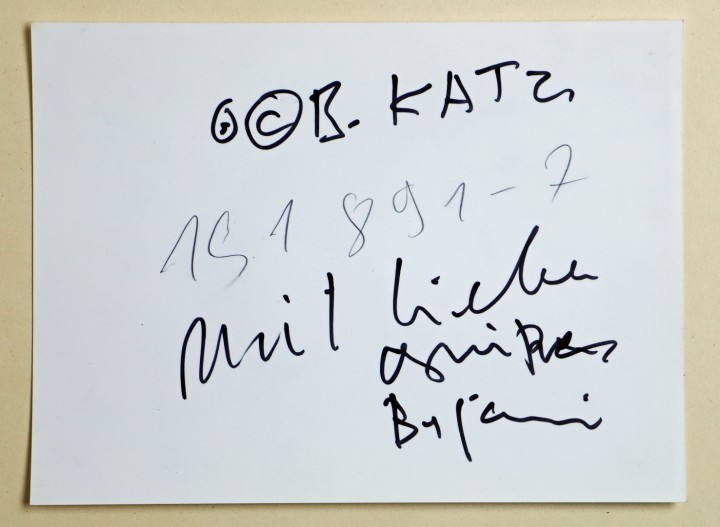 ©B. KATZ
151 891-7
Mit lieben
Grüßen
Benjamin